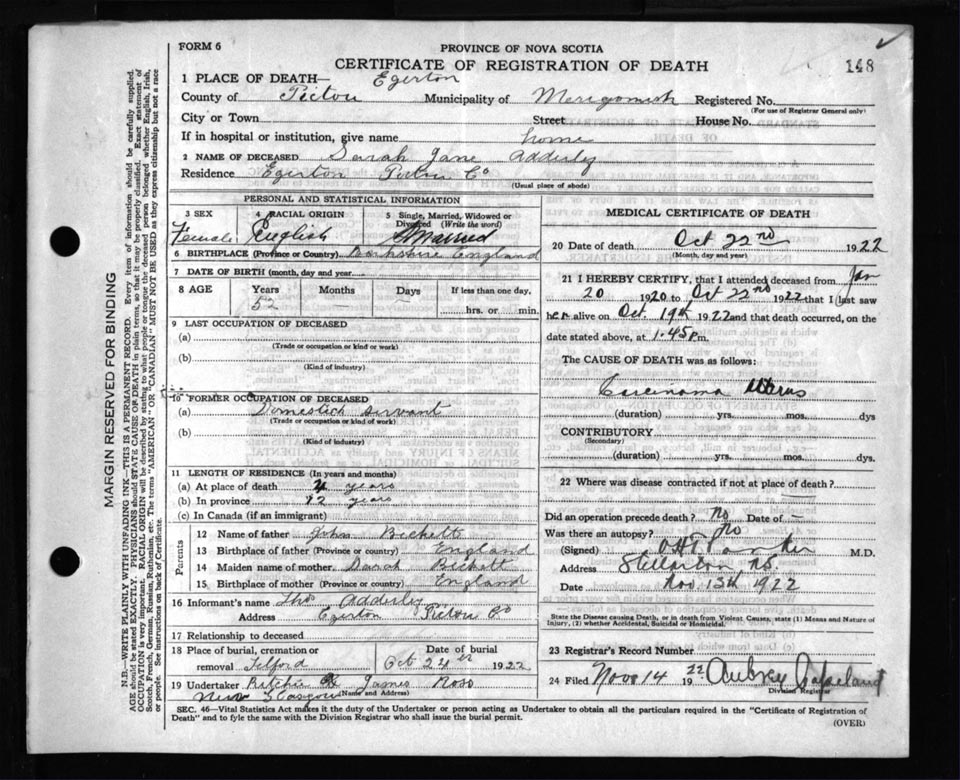 FORM 6
PROVINCE OF NOVA SCOTIA
CERTIFICATE OF REGISTRATION OF DEATH
148
1 PLACE OF DEATH— Egerton
County of Pictou Municipality of Merigomish Registered No.
(For use of Registrar General only)
City or Town Street House No.
If in hospital or institution, give name home
2 NAME OF DECEASED Sarah Jane Adderley
Residence Egerton Pictou Co
(Usual place of abode)
PERSONAL AND STATISTICAL INFORMATION
3 SEX 4 RACIAL ORIGIN 5 Single, Married, Widowed or Divorced (Write the word)
Female English Married
6 BIRTHPLACE (Province or Country) England
7 DATE OF BIRTH (month, day and year)
8 AGE Years Months Days If less than one day,
52 — — hrs. or min.
9 LAST OCCUPATION OF DECEASED
(a)
(Trade or occupation or kind or work)
(b)
(Kind of industry)
10 FORMER OCCUPATION OF DECEASED
(a) Domestich servant
(Trade or occupation or kind of work)
(b)
(Kind of Industry)
11 LENGTH OF RESIDENCE (In years and months)
(a) At place of death years
(b) In province 12 years
(c) In Canada (if an immigrant)
Parents
12 Name of father John Bickett
13 Birthplace of father (Province or country) England
14 Maiden name of mother Sarah Bickett
15 Birthplace of mother (Province or country) England
16 Informant's name Thos Adderley
Address Egerton Pictou Co
17 Relationship to deceased
18 Place of burial, cremation or removal Telford Oct 24th 1922
19 Undertaker Ritchie & James Ross
(Name and Address)
New Glasgow
MEDICAL CERTIFICATE OF DEATH
20 Date of death Oct 22nd 1922
(Month, day and year)
21 I HEREBY CERTIFY, that I attended deceased from Jan
20 1920 to Oct 22nd 1922 that I last saw
her alive on Oct 19th 1922 and that death occurred, on the
date stated above, at 1.45 p.m.
The CAUSE OF DEATH was as follows:
Carcinoma Uterus
(duration) yrs. mos. dys
CONTRIBUTORY
(Secondary)
(duration) yrs. mos. dys.
22 Where was disease contracted if not at place of death?
Did an operation precede death? No Date of –
Was there an autopsy? No
(Signed) M.D.
Address Stellarton NS.
Date Nov. 13th 1922
State the Disease causing Death, or in death from Violent Causes, state (1) Means and Nature of
Injury, (2) whether Accidental, Suicidal or Homicidal.
23 Registrar's Record Number
24 Filed Nov 14 1922 Aubrey
Division Registrar
SEC. 46—Vital Statistics Act makes it the duty of the Undertaker or person acting as Undertaker to obtain all the particulars required in the "Certificate of Registration of
Death" and to fyle the same with the Division Registrar who shall issue the burial permit.
(OVER)
MARGIN RESERVED FOR BINDING
N.B.—WRITE PLAINLY WITH UNFADING INK—THIS IS A PERMANENT RECORD. Every item of information should be carefully supplied.
AGE should be stated EXACTLY. PHYSICIANS should STATE CAUSE OF DEATH in plain terms, so that it may be properly classified. Exact statement of
OCCUPATION is very important. RACIAL ORIGIN will be described by stating to what people or tongue the deceased person belonged whether English, Irish,
Scotch, French, German, Russian, Ruthenian, etc. The terms "AMERICAN" OR "CANADIAN" MUST NOT BE USED as they express citizenship but not a race
or people. See instructions on back of Certificate.